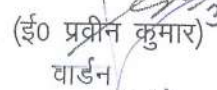 (ई० प्रवीन कुमार)
वार्डन